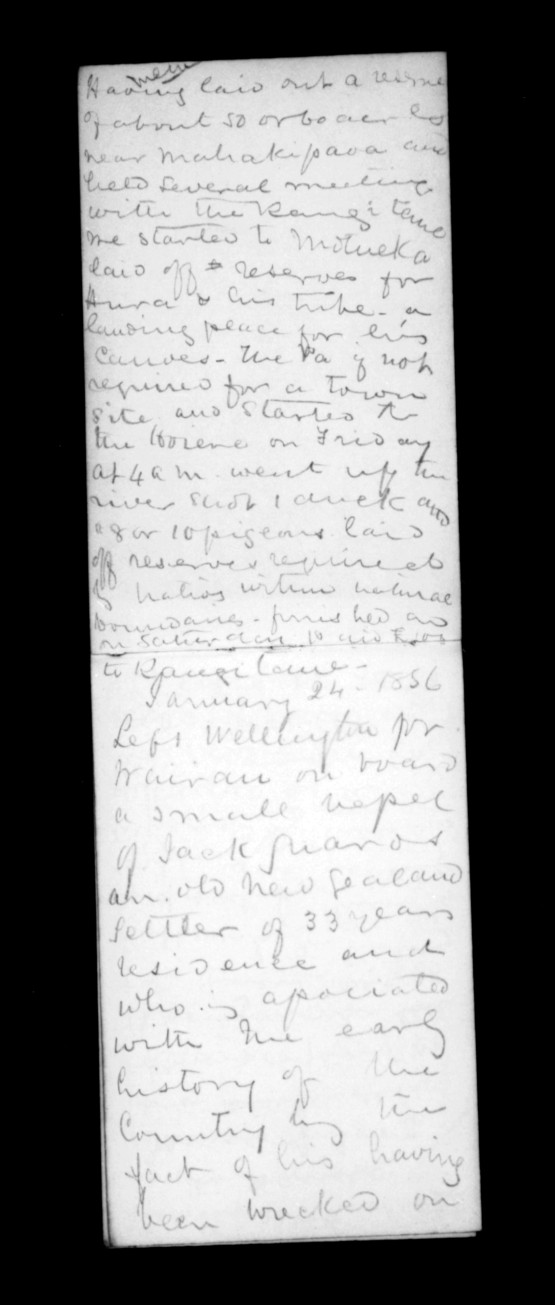 mem
Having laid out a reserve
of about 50 or 60 acres
near Mahakipawa and
held several meeting
with the Rangitane
we started to Motueka
laid off reserves for
Hura & his tribe - a
landing peace for his
Canoes - the Pa if not
required for a town
site and Started to
the on Friday
at 4 a m went up the
river Shot 1 duck and
8 or 10 pigeons laid
off reserves required
by natives within natural
boundaries - finished
on Saturday
to Rangitane -
January 24 - 1856
Left Wellington for
Wairau on board
a small vessel
of Jack Guards
an old New Zealand
Settler of 33 years
residence and
who is associated
with the early
history of the
Country by the
fact of his having
been wrecked on